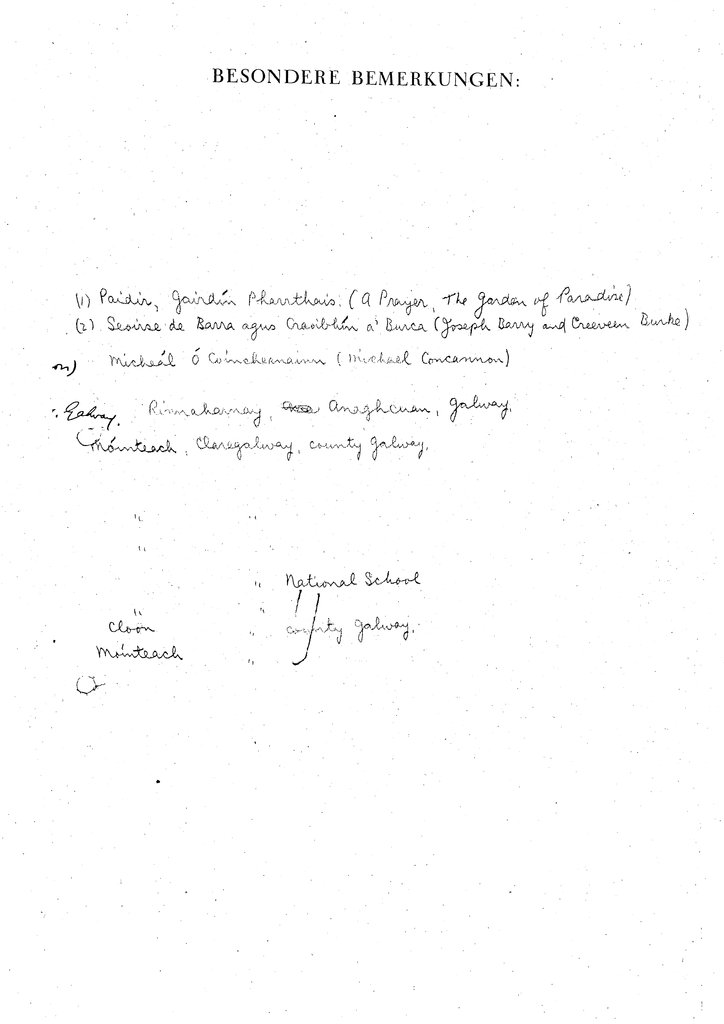 BESONDERE BEMERKUNGEN:
(1) Paidir, Gairdín Pharrthais. (A Prayer, The Garden of Paradise)
(2) Seoirse de Barra agus Craoibhín a' Burca (Joseph Barry and Creeveen Burke)
Micheál Ó Coincheanainn (Michael Concannon)
Galway. Rinnaharnay, Anaghcuan, Galway.
Móinteach, Claregalway, county Galway.
" "
"
" National School
" "
Cloón " county Galway.
Móinteach "